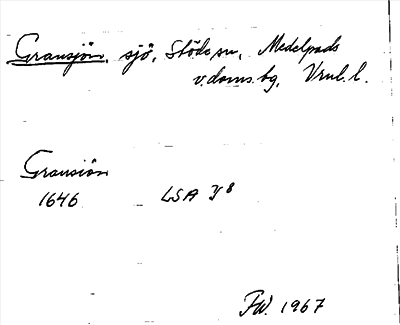 Gransjön, sjö, Stöde sn, Medelpads
v. doms. bg, Vrnl. l.
Gransiön
1646 LSA Y8
FW. 1967